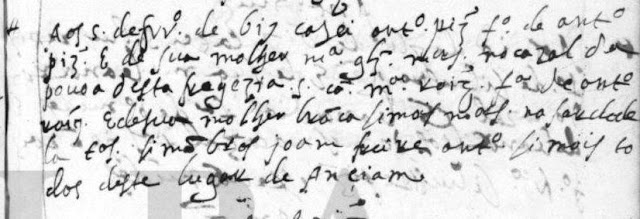 Aos 5 de fvrº. de 617 casei antº. piz̃ fº. de antº.
piz̃. E de sua molher mª. glz̃. mrs. no cazal da
pouoa desta fregezia. s. cõ mª. roiz̃. fª de antº
roiz̃. E de sua molher brãca simoes nões. na
la tos. simõ bros joam freire antº. simois to
dos deste lugar de Anciam